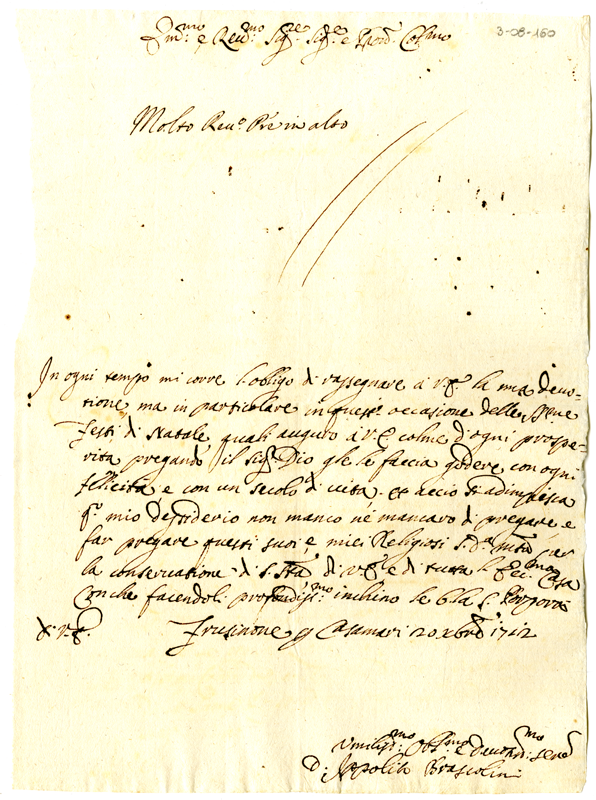 3-08-160
Em:mo e Rev:mo Sig:re Sig:re e Pron: Col:mo
Molto Rev.o Pre in alto
In ogni tempo mi corre l'obligo di rassegnare à V. E. la mia devo-
tione, ma in particolare in queste occasione delle SSme
Feste di Natale, quali auguro à V. E. colme d'ogni prospe-
rita pregando il sig.r Dio gle le faccia godere con ogni
fellicita, e con un secolo di vita. et accio si adimpisca
q.o mio dessiderio non manco ne mancaro di pregare, e
far pregare questi suoi, e miei Religiosi S. D. per
la conservatione di S. Sta di V. E. e di tutta l'Ecc:ma Casa
Con che facendoli profondiss:mo inchino le b la S. Porpora
di V. E. Frusinone p Casamari 20 Xbre 1712
Umiliss:mo Obl:mo e Devotiss:mo serv.
D. Ippolito Brascolini